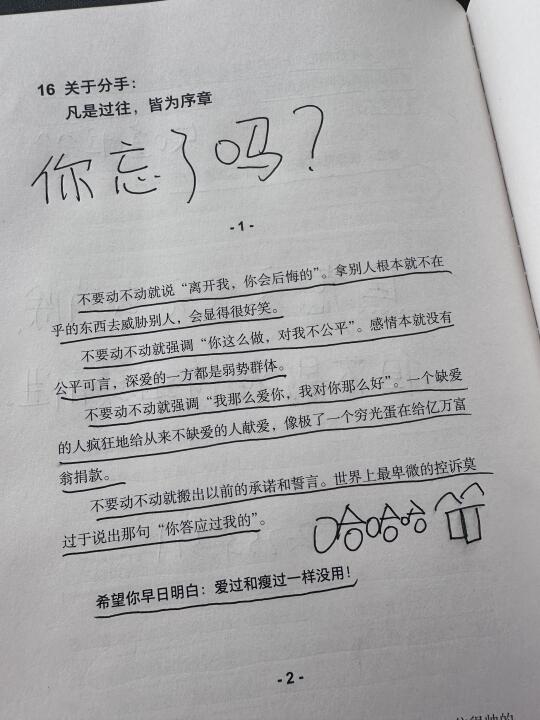 16 关于分手：
凡是过往，皆为序章
你忘了吗？
- 1 -
不要动不动就说“离开我，你会后悔的”。拿别人根本就不在
乎的东西去威胁别人，会显得很好笑。
不要动不动就强调“你这么做，对我不公平”。感情本就没有
公平可言，深爱的一方都是弱势群体。
不要动不动就强调“我那么爱你，我对你那么好”。一个缺爱
的人疯狂地给从来不缺爱的人献爱，像极了一个穷光蛋在给亿万富
翁捐款。
不要动不动就搬出以前的承诺和誓言。世界上最卑微的控诉莫
过于说出那句“你答应过我的”。
希望你早日明白：爱过和瘦过一样没用！
- 2 -